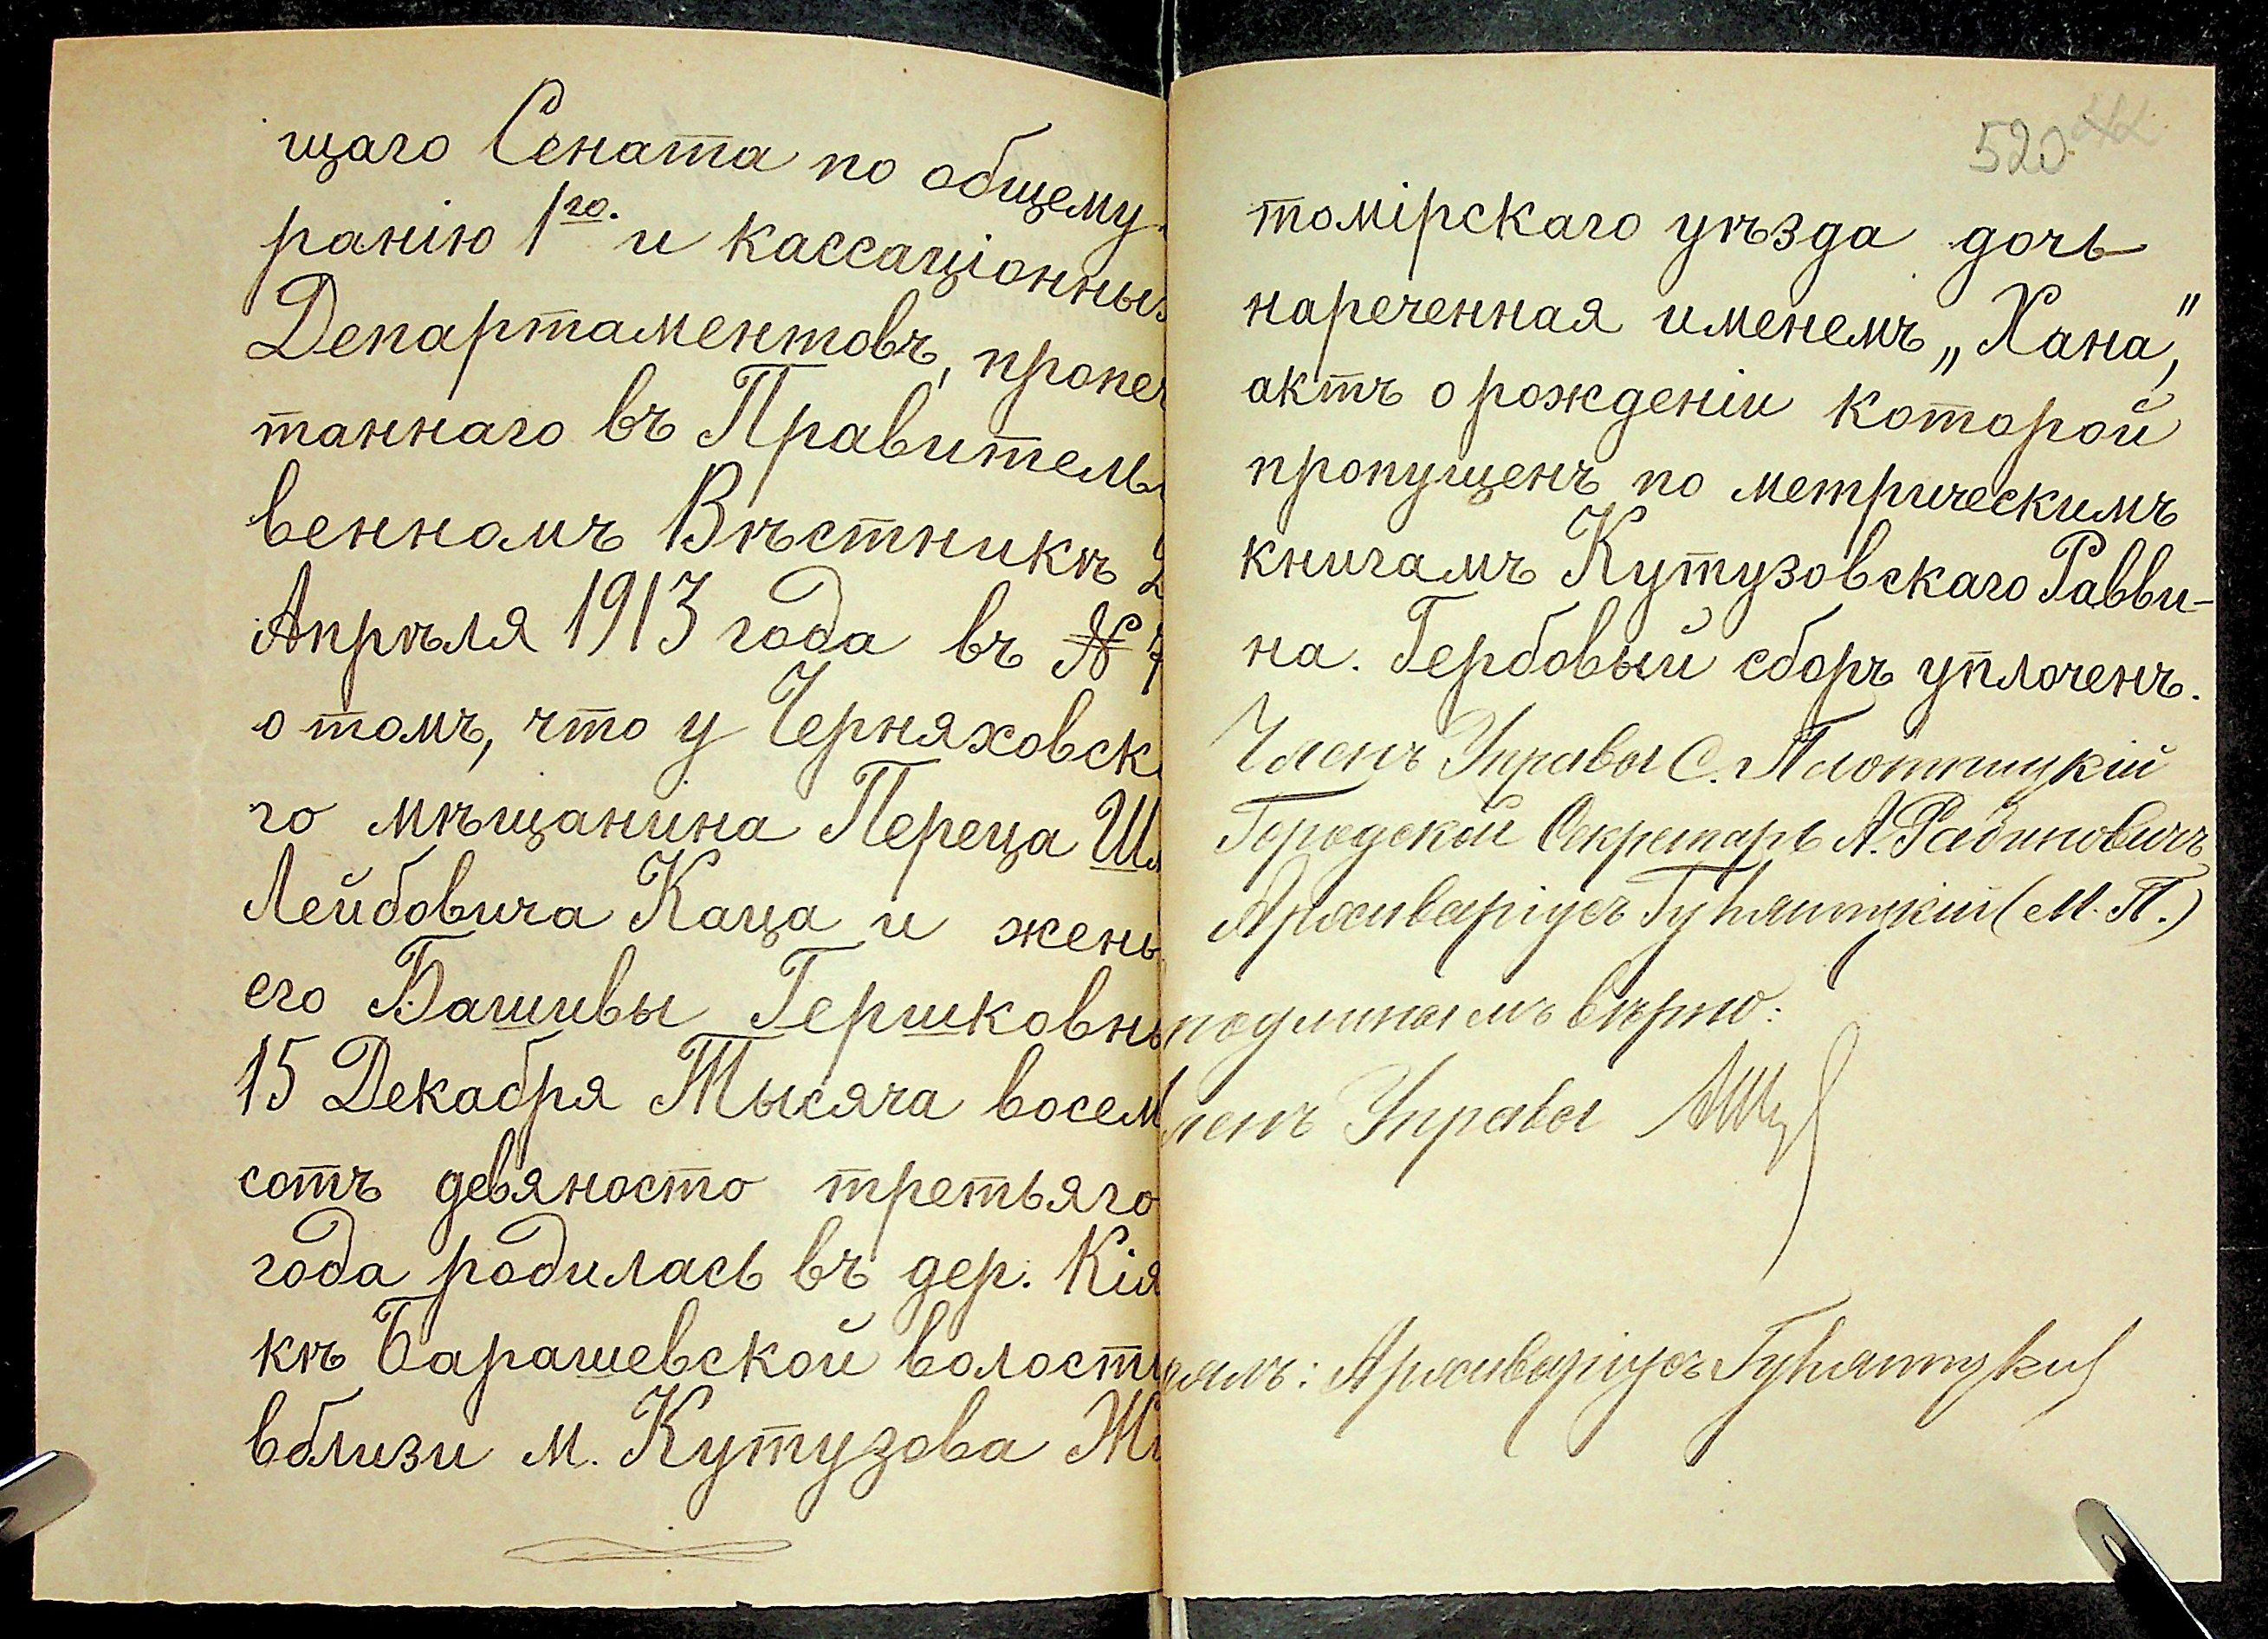 щаго Сената по общему
ранію 1го. и кассаціонны
Департаментовъ, пропе
таннаго въ Правитель
венномъ Вѣстникѣ
Апрѣля 1913 года въ №
о томъ, что у Черняховск
го мѣщанина Переца Ш
Лейбовича Каца и жены
его Башивы Гершковны
15 Декабря Тысяча восем
сотъ девяносто третьяго
года родилась въ дер. Кія
кѣ Барашевской волости
вблизи м. Кутузова Жи
520
томірскаго уѣзда дочь
нареченная именемъ „Хана",
актъ о рожденіи которой
пропущенъ по метрическимъ
книгамъ Кутузовскаго Равви-
на. Гербовый сборъ уплоченъ.
Членъ Управы С. Плотницкій
Городской Секретарь А. Рабиновичъ
Архиваріусъ (М. П.)
подлиннымъ вѣрно:
ленъ Управы
Архиваріусъ